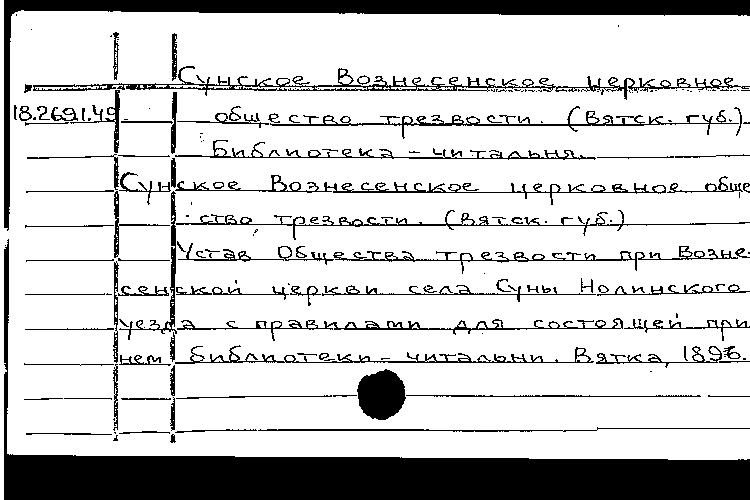 Сунское Вознесенское церковное
18.2691.49 общество трезвости. (Вятск. губ.)
Библиотека - читальня.
Сунское Вознесенское церковное обще
ство трезвости. (Вятск. губ.)
Устав Общества трезвости при Возне-
сенской церкви села Суны Нолинского
уезда с правилами для состоящей при
нем библиотеки - читальни. Вятка,